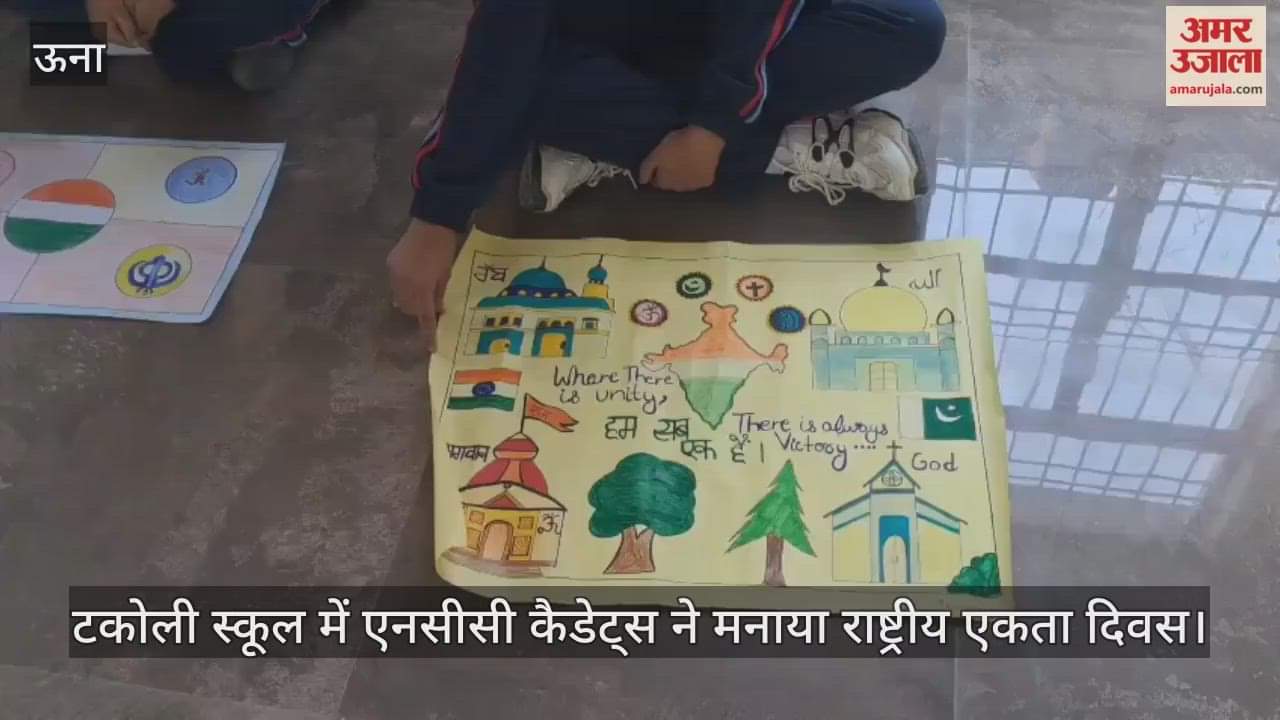 ऊना
अमर
उजाला
amarujala.com
ਰੱਬ
الله
Where There
is unity,
हम सब
एक हैं।
There is always
Victory ....
भगवान
God
ॐ
टकोली स्कूल में एनसीसी कैडेट्स ने मनाया राष्ट्रीय एकता दिवस।